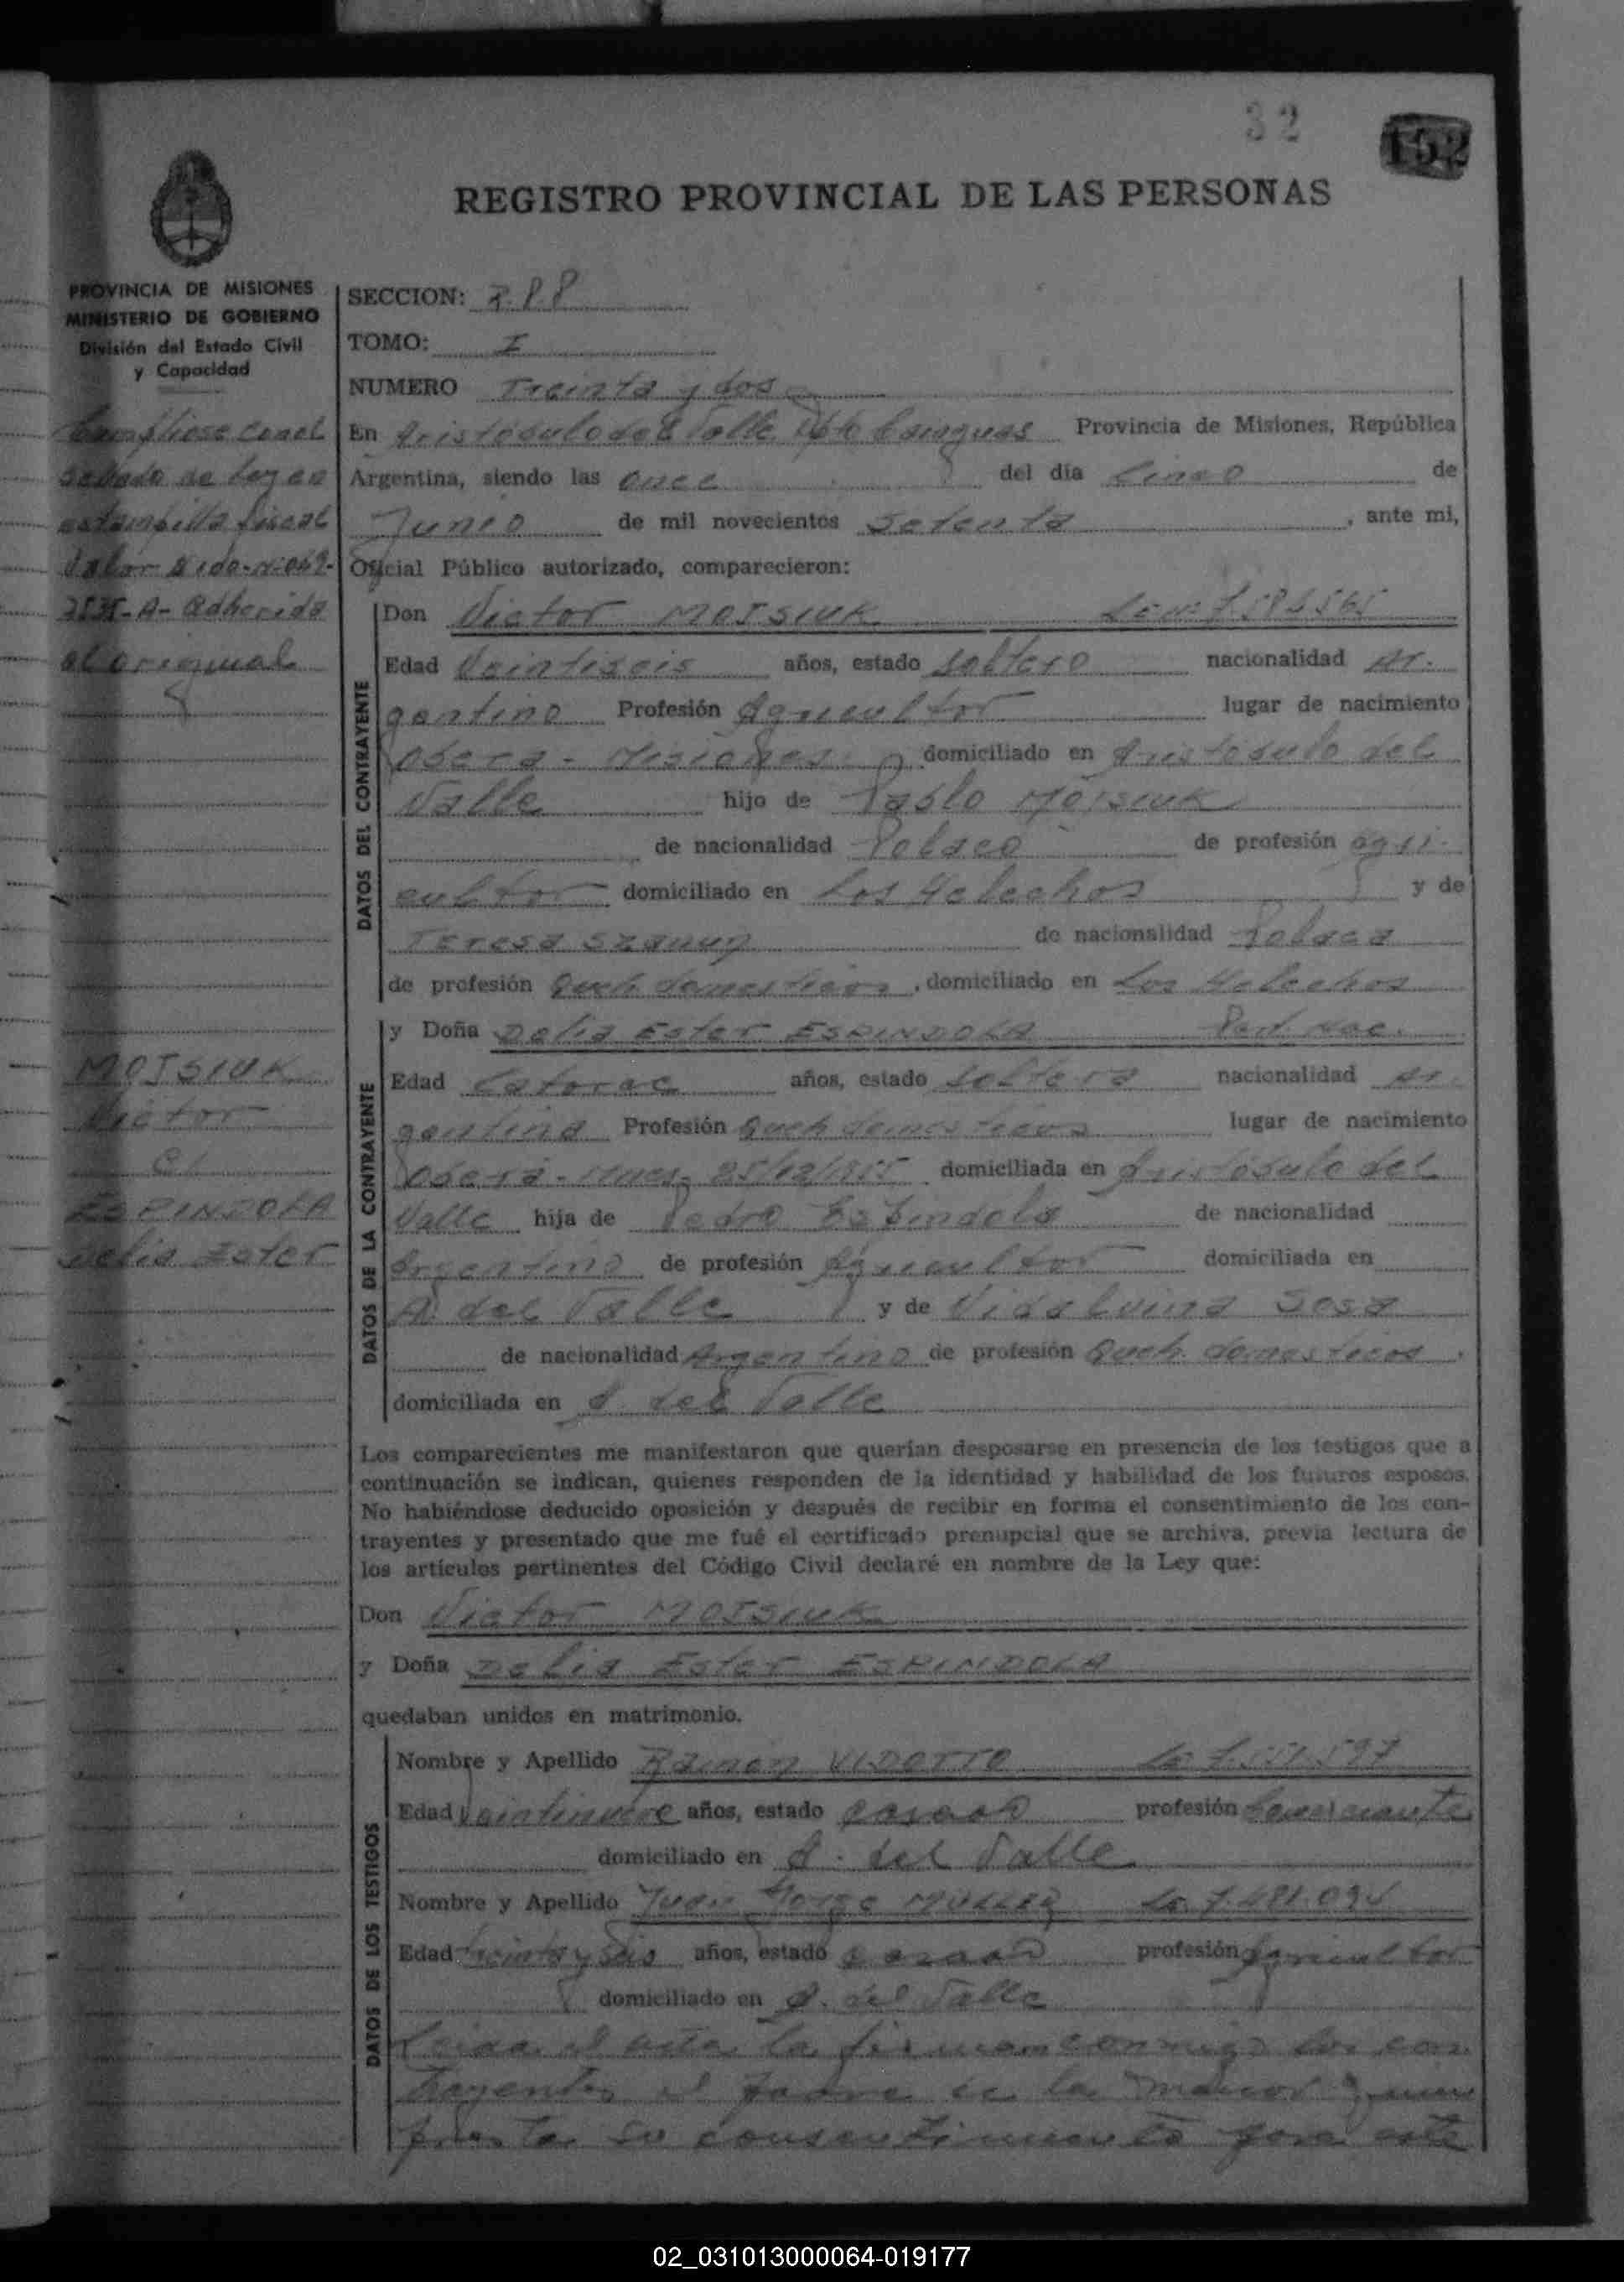 32
152
REGISTRO PROVINCIAL DE LAS PERSONAS
PROVINCIA DE MISIONES
MINISTERIO DE GOBIERNO
División del Estado Civil
y Capacidad
SECCION:
TOMO: I
NUMERO Treinta y dos
En Aristóbulo del Valle Dpto Cainguas Provincia de Misiones, República
Argentina, siendo las once del día Cinco de
Junio de mil novecientos Setenta, ante mi,
Oficial Público autorizado, comparecieron:
Cumpliose con el
sellado de Ley en
estampilla fiscal
Valor
A- Adherida
al original
DATOS DEL CONTRAYENTE
Don Victor MOISIUK
Edad Veintiseis años, estado soltero nacionalidad Ar-
gentino Profesión Agricultor lugar de nacimiento
Oberá - Misiones domiciliado en Aristóbulo del
Valle hijo de Pablo MOISIUK
de nacionalidad Polaco de profesión agri-
cultor domiciliado en Los Helechos y de
Teresa de nacionalidad Polaca
de profesión Queh. domesticos, domiciliado en Los Helechos
MOISIUK
Victor
c/
ESPINDOLA
Delia Ester
DATOS DE LA CONTRAYENTE
y Doña Delia Ester ESPINDOLA Part. Nac.
Edad Catorce años, estado soltera nacionalidad Ar-
gentina Profesión Queh domesticos lugar de nacimiento
Oberá - Mnes. 25/12/1955 domiciliada en Aristóbulo del
Valle hija de Pedro Espindola de nacionalidad
Argentino de profesión Agricultor domiciliada en
A. del Valle y de Vidalvina Sosa
de nacionalidad Argentina de profesión Queh. domesticos,
domiciliada en A. del Valle
Los comparecientes me manifestaron que querían desposarse en presencia de los testigos que a
continuación se indican, quienes responden de la identidad y habilidad de los futuros esposos.
No habiéndose deducido oposición y después de recibir en forma el consentimiento de los con-
trayentes y presentado que me fué el certificado prenupcial que se archiva, previa lectura de
los artículos pertinentes del Código Civil declaré en nombre de la Ley que:
Don Victor MOISIUK
y Doña Delia Ester ESPINDOLA
quedaban unidos en matrimonio.
DATOS DE LOS TESTIGOS
Nombre y Apellido Ramón VIDOTTO
Edad veintinueve años, estado casado profesión Comerciante
domiciliado en A. del Valle
Nombre y Apellido Juan
Edad treinta y seis años, estado casado profesión Agricultor
domiciliado en A. del Valle
Leida el acta la firman conmigo los con-
trayentes el padre de la menor quien
presta su consentimiento para este
02_031013000064-019177